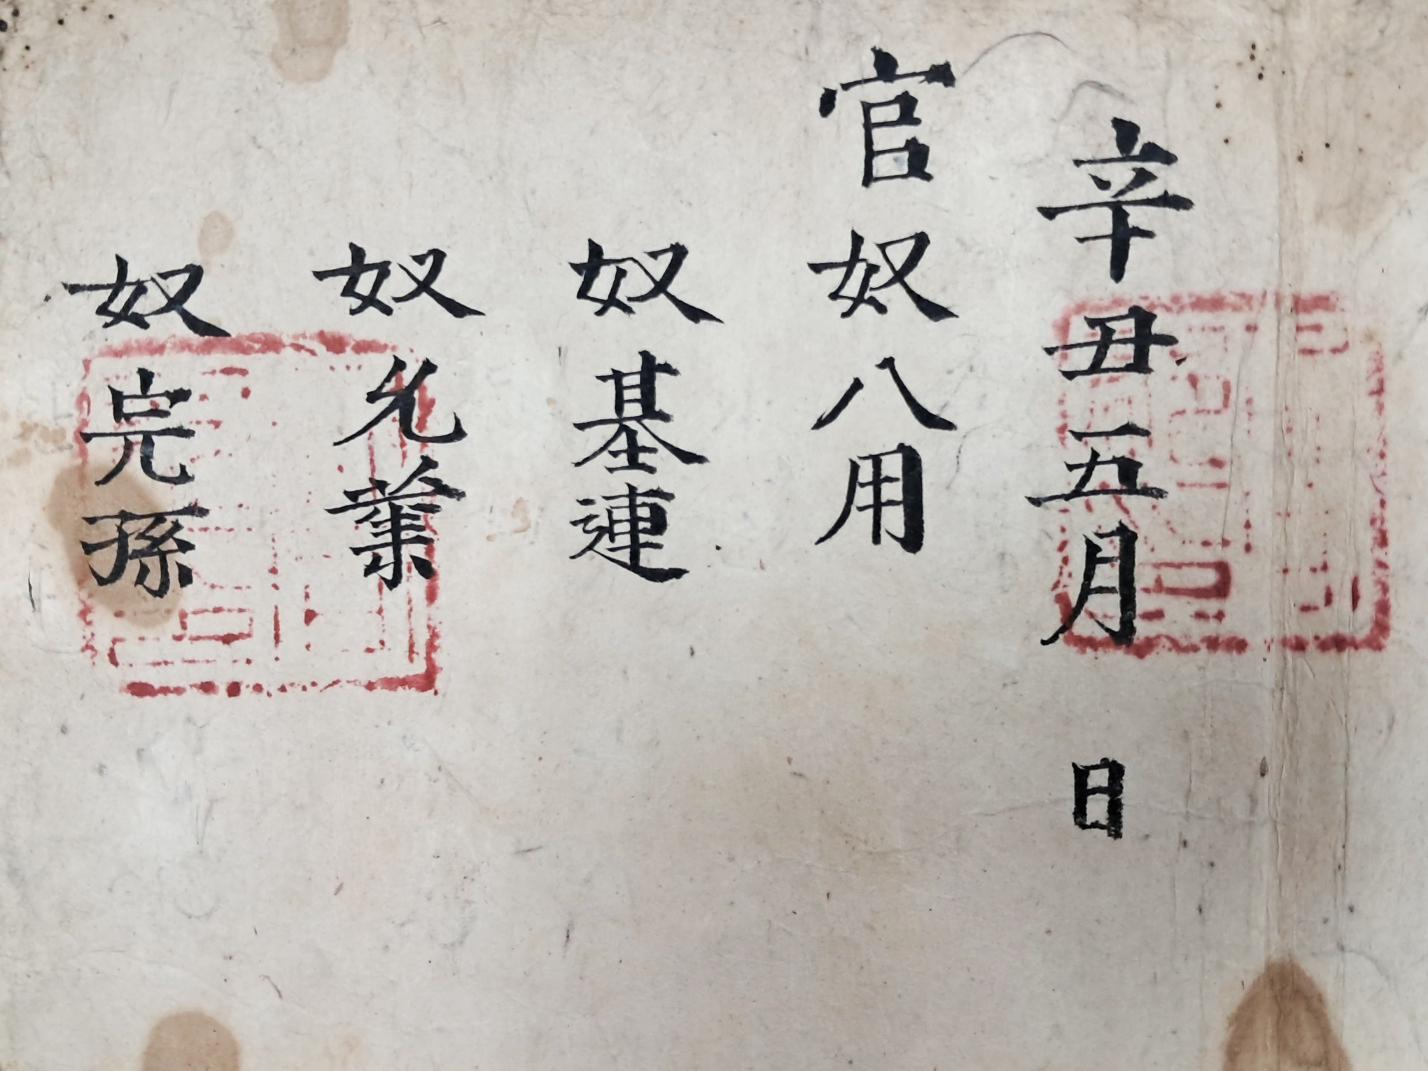 辛丑五月 日
官奴八用
奴基連
奴允葉
奴完孫